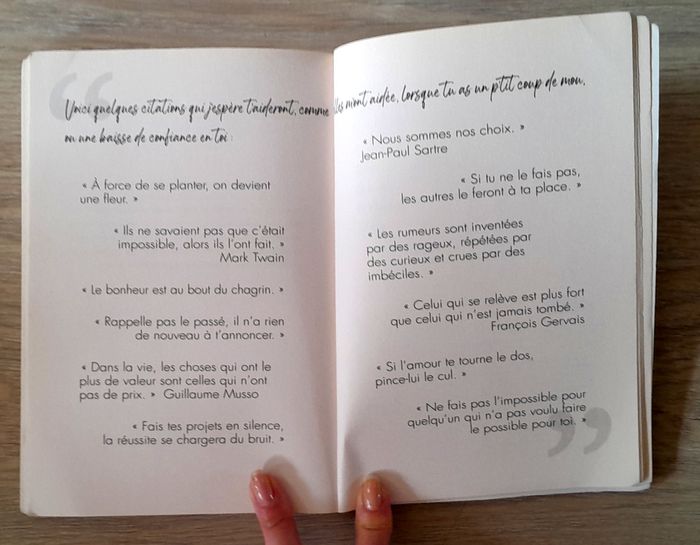 Voici quelques citations qui j'espère t'aideront, comme elles m'ont aidée, lorsque tu as un p'tit coup de mou,
ou une baisse de confiance en toi :
« À force de se planter, on devient
une fleur. »
« Ils ne savaient pas que c'était
impossible, alors ils l'ont fait. »
Mark Twain
« Le bonheur est au bout du chagrin. »
« Rappelle pas le passé, il n'a rien
de nouveau à t'annoncer. »
« Dans la vie, les choses qui ont le
plus de valeur sont celles qui n'ont
pas de prix. » Guillaume Musso
« Fais tes projets en silence,
la réussite se chargera du bruit. »
« Nous sommes nos choix. »
Jean-Paul Sartre
« Si tu ne le fais pas,
les autres le feront à ta place. »
« Les rumeurs sont inventées
par des rageux, répétées par
des curieux et crues par des
imbéciles. »
« Celui qui se relève est plus fort
que celui qui n'est jamais tombé. »
François Gervais
« Si l'amour te tourne le dos,
pince-lui le cul. »
« Ne fais pas l'impossible pour
quelqu'un qui n'a pas voulu faire
le possible pour toi. »